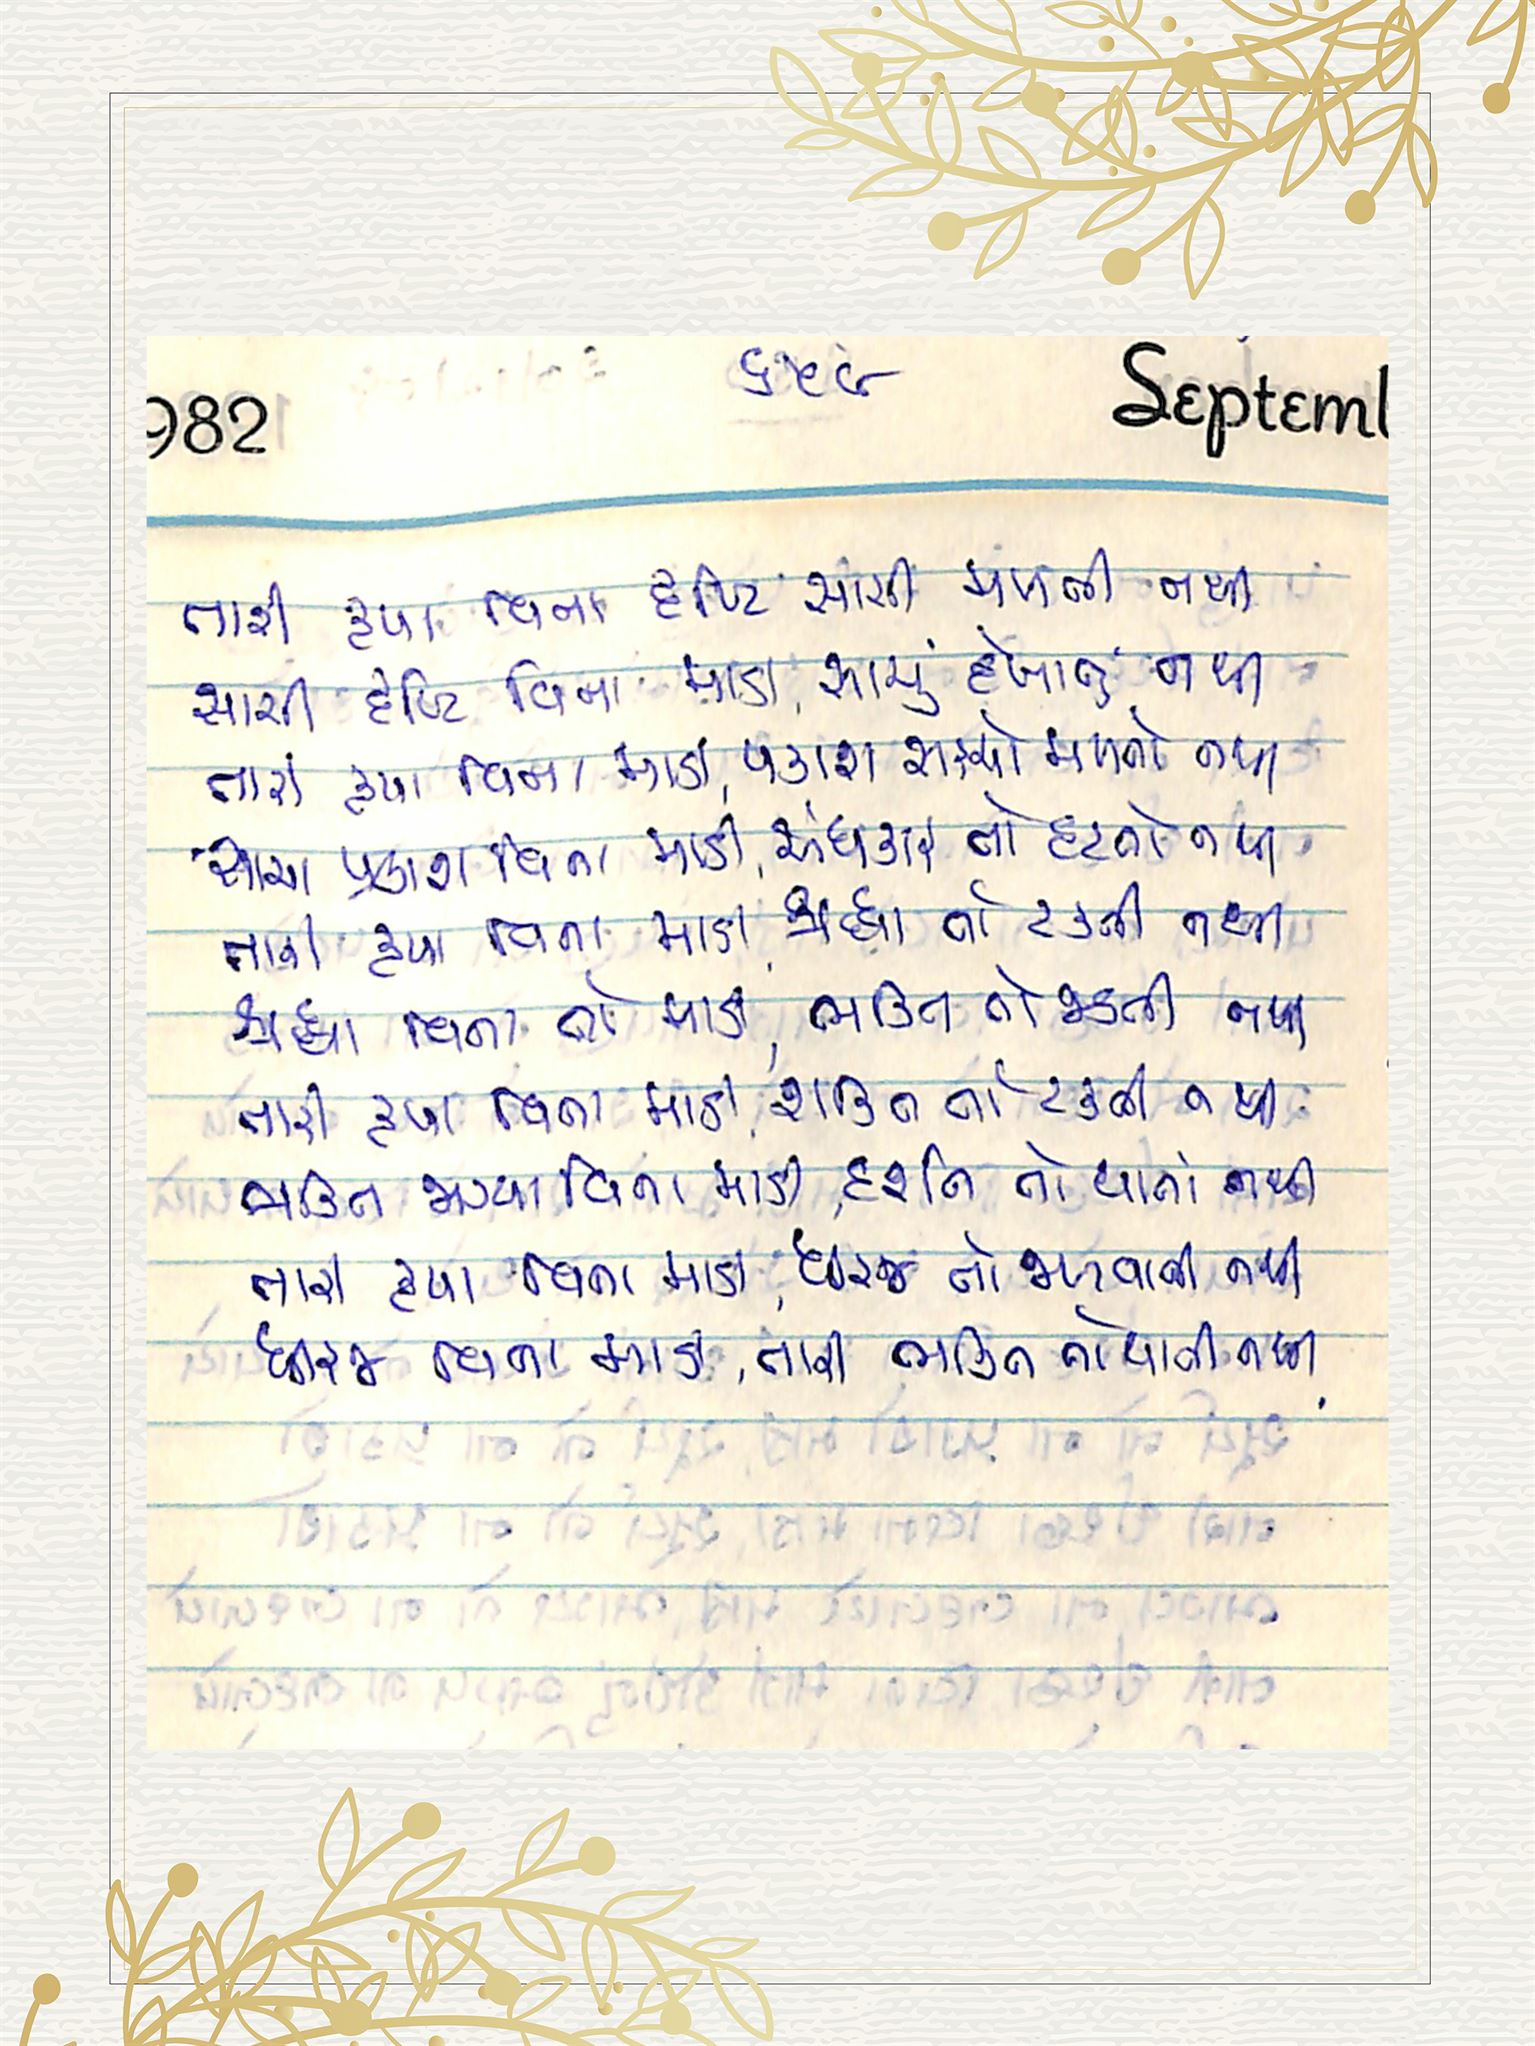 982 ૬૪૯ Septemb
તારી કૃપા વિના દૃષ્ટિ સાચી મળતી નથી
સાચી દૃષ્ટિ વિના માડી, સાચું દેખાતું નથી
તારી કૃપા વિના માડી, પ્રકાશ સાચો મળતો નથી
સાચા પ્રકાશ વિના માડી, અંધકાર તો હટતો નથી
તારી કૃપા વિના માડી, શ્રદ્ધા તો ટકતી નથી
શ્રદ્ધા વિના તો માડી, ભક્તિ તો જડતી નથી
તારી કૃપા વિના માડી, શક્તિ તો ટકતી નથી
ભક્તિ જાગ્યા વિના માડી, દર્શન તો થાતાં નથી
તારી કૃપા વિના માડી, ધીરજ તો જળવાતી નથી
ધીરજ વિના માડી, તારી ભક્તિ તો થાતી નથી.